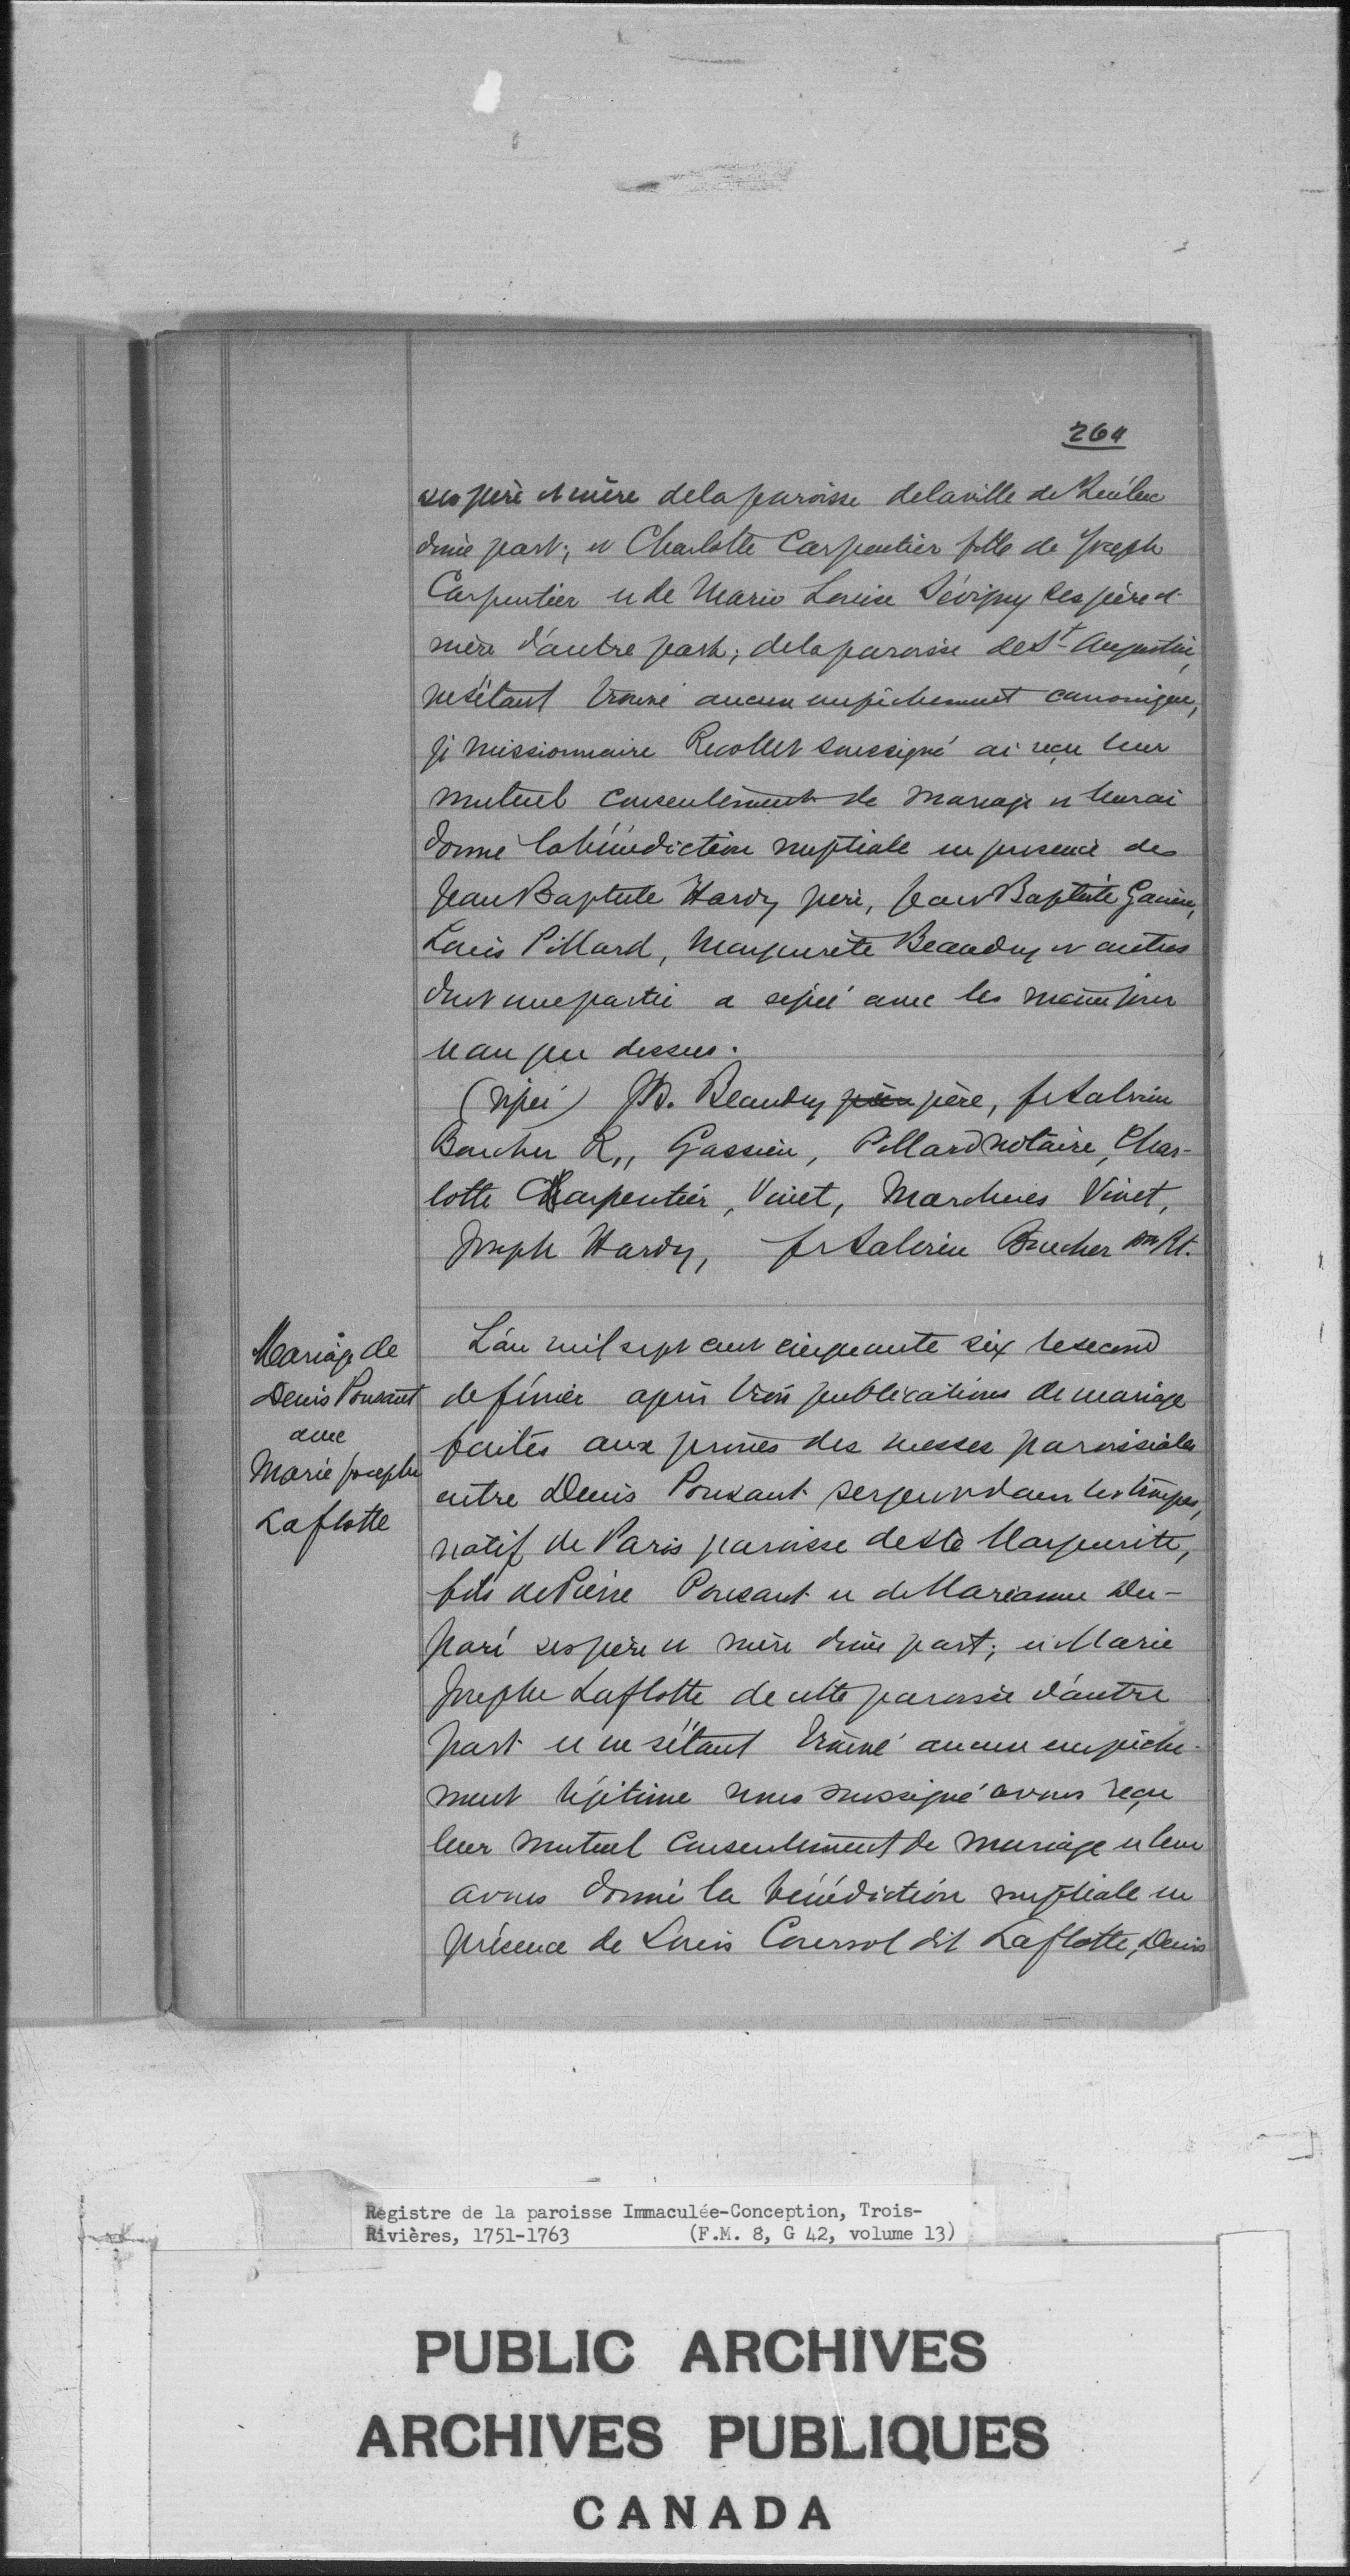 264
ses père et mère de la paroisse de la ville de Kuébec
d'une part; et Charlotte Carpentier fille de Joseph
Carpentier et de Marie Louise Sévigny ses père et
mère d'autre part; de la paroisse de St Augustin,
ne s'étant trouvé aucun empêchement canonique,
je missionnaire Recollet soussigné ai reçu leur
mutuel consentement de mariage et leur ai
donné la bénédiction nuptiale en presence des
Jean Baptiste Hardy père, Jean Baptiste
Louis Pillard, Marguerite Beaudry et autres
dont une partie a signé avec les même jour
et an que dessus.
(signé) JB. Beaudry père, fr Salvien
Boucher R., Gassien, Pillard notaire, Char-
lotte Carpentier, Vinet, Vinet,
Joseph Hardy, fr Salvien Boucher Rt.
Mariage de
Denis Pousant
avec
Marie Josephe
Laflotte
L'an mil sept cent cinquante six le second
de février après trois publications de mariage
faites aux prônes des messes paroissiales
entre Denis Pousant sergent dans les troupes,
natif de Paris paroisse de Ste Marguerite,
fils de Pierre Pousant et de Marianne Du-
paré ses père et mère d'une part; et Marie
Josephe Laflotte de cette paroisse d'autre
part et ne s'étant trouvé aucun empêche-
ment légitime nous soussigné avons reçu
leur mutuel consentement de mariage et leur
avons donné la bénédiction nuptiale en
présence de Louis Coursol dit Laflotte, Denis
Registre de la paroisse Immaculée-Conception, Trois-
Rivières, 1751-1763 (F.M. 8, G 42, volume 13)
PUBLIC ARCHIVES
ARCHIVES PUBLIQUES
CANADA